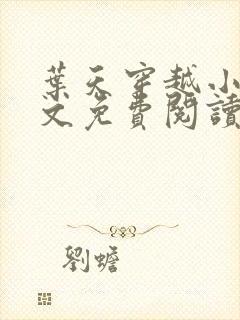 葉天穿越小
文免費閱讀
劉蟾